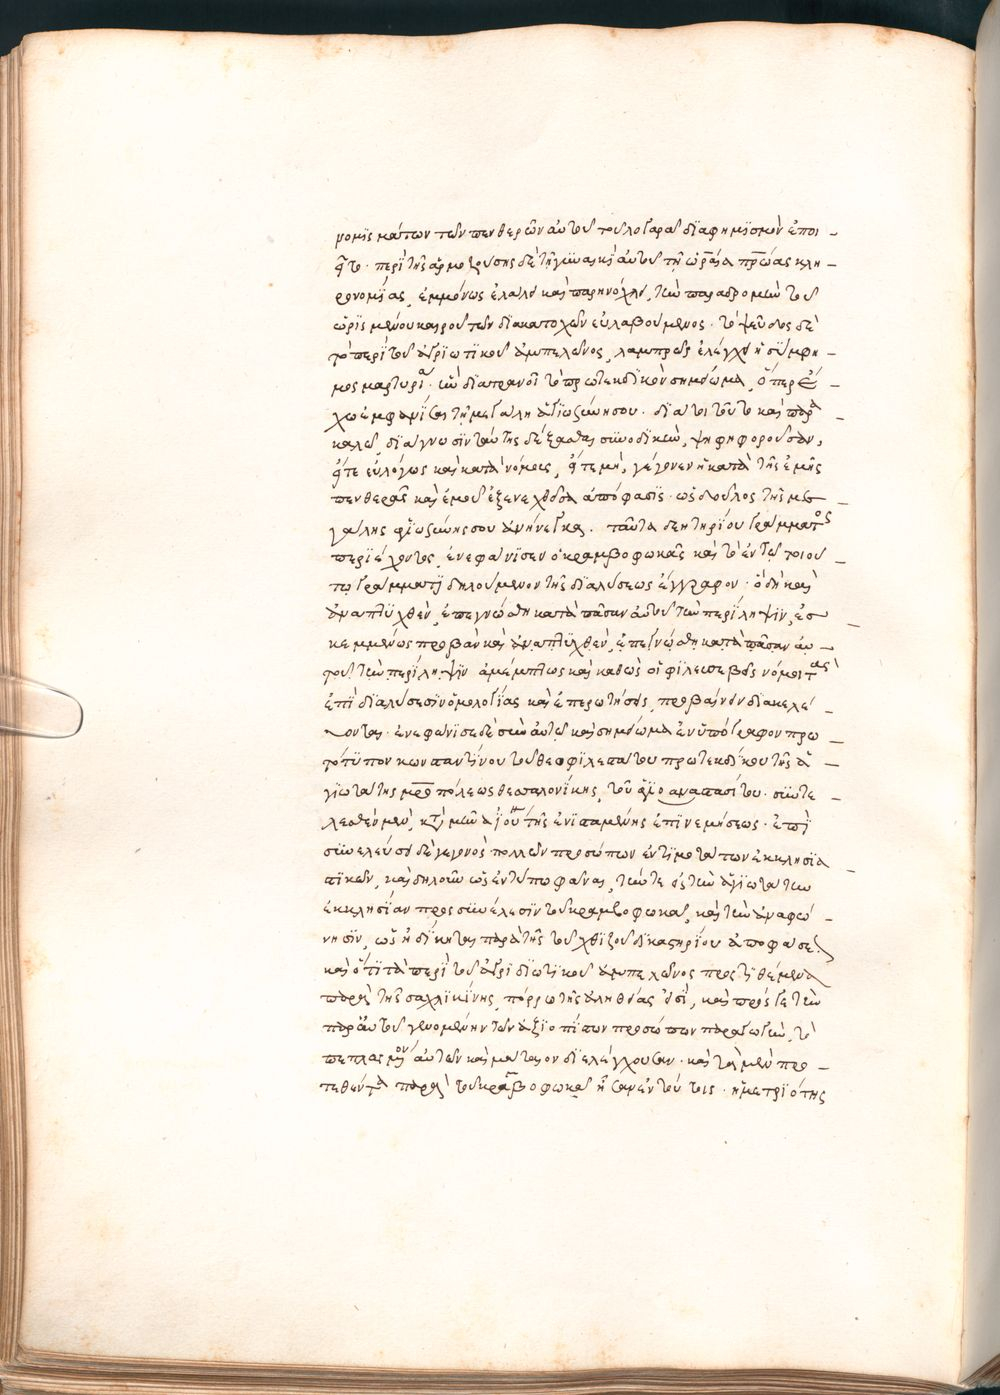 νομϊς κάτων τῶν πενθερῶν αὐτοῦ τοῦ λογαρᾶ διαφημισμὸν ἐποι -
εῖτο· περὶ τῆς ἁρμοζούσης δὲ τῇ γυναικὶ αὐτοῦ τῇ πρώας κλη -
ρονομίας, ἐμμόνως ἐλάλει καὶ παρηνόχλει, τὴν παραδρομὴν τοῦ
ὡρισμένου καιροῦ τῶν διακατοχῶν εὐλαβούμενος· τὸ ψεῦδος δὲ
τὸ περὶ τοῦ ἀμπελῶνος, λαμπρῶς ἐλέγχει ἡ σύμφη -
μος μαρτυρία· ἣν διατρανοῖ τὸ πρωτεκδικὸν σημείωμα, ὅπερ
χω ἐμφανίζει τῇ μεγάλῃ ἁγιωσύνῃ σου· διά τοι τοῦτο καὶ παρα -
καλῶ, διάγνωσιν ταύτης δέξασθαι συνοδικὴν, ψηφηφοροῦσαν,
εἴτε εὐλόγως καὶ κατὰ νόμους, εἴτε μὴ, γέγονεν ἡ κατὰ τῆς ἐμῆς
πενθερᾶς καὶ ἐμοῦ ἐξενεχθεῖσα ἀπόφασις· ὡς δοῦλος τῆς με -
γάλης ἁγιωσύνης σου ἀνήνεγκα. ταῦτα δεητηρίου γράμματος
περιέχοντος, ἐνεφάνισεν ὁ κραμβοφωκᾶς καὶ τὸ ἐν τῷ τοιού -
τῳ γράμματι δηλούμενον τῆς διαλύσεως ἔγγραφον· ὃ δὴ καὶ
ἀναπτυχθὲν, ἐπεγνώσθη κατὰ πᾶσαν αὐτοῦ τὴν περίληψιν, ἐσ -
κεμμένως προβὰν καὶ ἀναπτυχθὲν, ἐπεγνώσθη κατὰ πᾶσαν αὐ -
τοῦ τὴν περίληψιν ἀμέμπτως καὶ καθὼς οἱ φιλευσεβεῖς νόμοι τὰς
ἐπὶ διαλύσεσιν ὁμολογίας καὶ ἐπερωτήσεις, προβαίνειν διακελεύ -
ονται· ἐνεφάνισε δὲ σὺν αὐτῷ καὶ σημείωμα ἐνυπόγραφον πρω -
τότυπον κωνσταντίνου τοῦ θεοφιλεστάτου πρωτεκδίκου τῆς ἁ -
γιωτάτης μητροπόλεως θεσσαλονίκης, τοῦ ἁγιοαναστασίτου· συντε -
λεσθὲν μὲν, κατὰ μῆνα τῆς ἐνισταμένης ἐπινεμήσεως· ἐπὶ
συνελεύσει δὲ γεγονὸς πολλῶν προσώπων ἐντιμοτάτων ἐκκλησια -
στικῶν, καὶ δηλοῦν ὡς ἐν τύπῳ φάναι, τήν τε εἰς τὴν ἁγιωτάτην
ἐκκλησίαν προσέλευσιν τοῦ κραμβοφωκᾶ, καὶ τὴν ἀναφώ -
νησιν, ὡς ἠδίκηται παρὰ τῆς τοῦ χθιζοῦ δικαστηρίου ἀποφάσεως
καὶ ὅτι τὰ περὶ τοῦ ἀμπελῶνος προστιθέμενα
παρὰ τῆς σαχλικίνης, πόρρω τῆς ἀληθείας εἰσὶ, καὶ πρός γε τὴν
παρ᾽ αὐτοῦ γενομένην τῶν ἀξιοπίστων προσώπων παραγωγὴν, τὸ
πεπλασμένον αὐτῶν καὶ μάταιον διελέγχουσαν· καὶ τὰ μὲν προ -
τεθέντα παρὰ τοῦ κραμβοφωκᾶ ἦσαν ἐν τούτοις· ἡ μετριότης